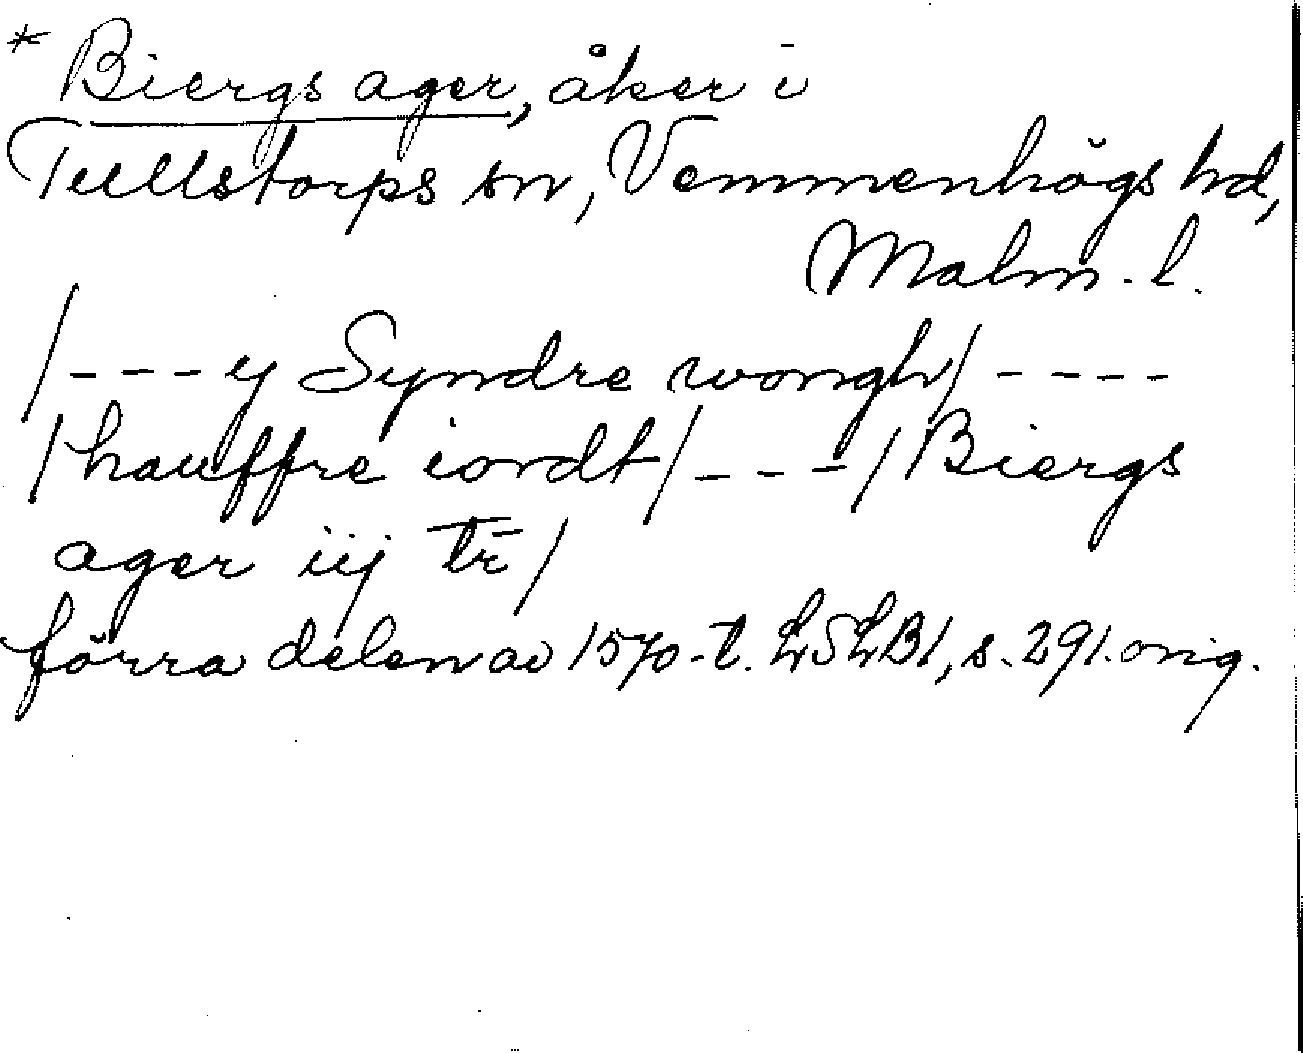 * Biergs ager, åker i
Tullstorps sn, Vemmenhögs hd,
Malm. l.
/---y Syndre wongh/----
/hauffre iordt/---/Biergs
ager iij tr̄/
förra delen av 1570-t. LSLB1, s. 291. orig.